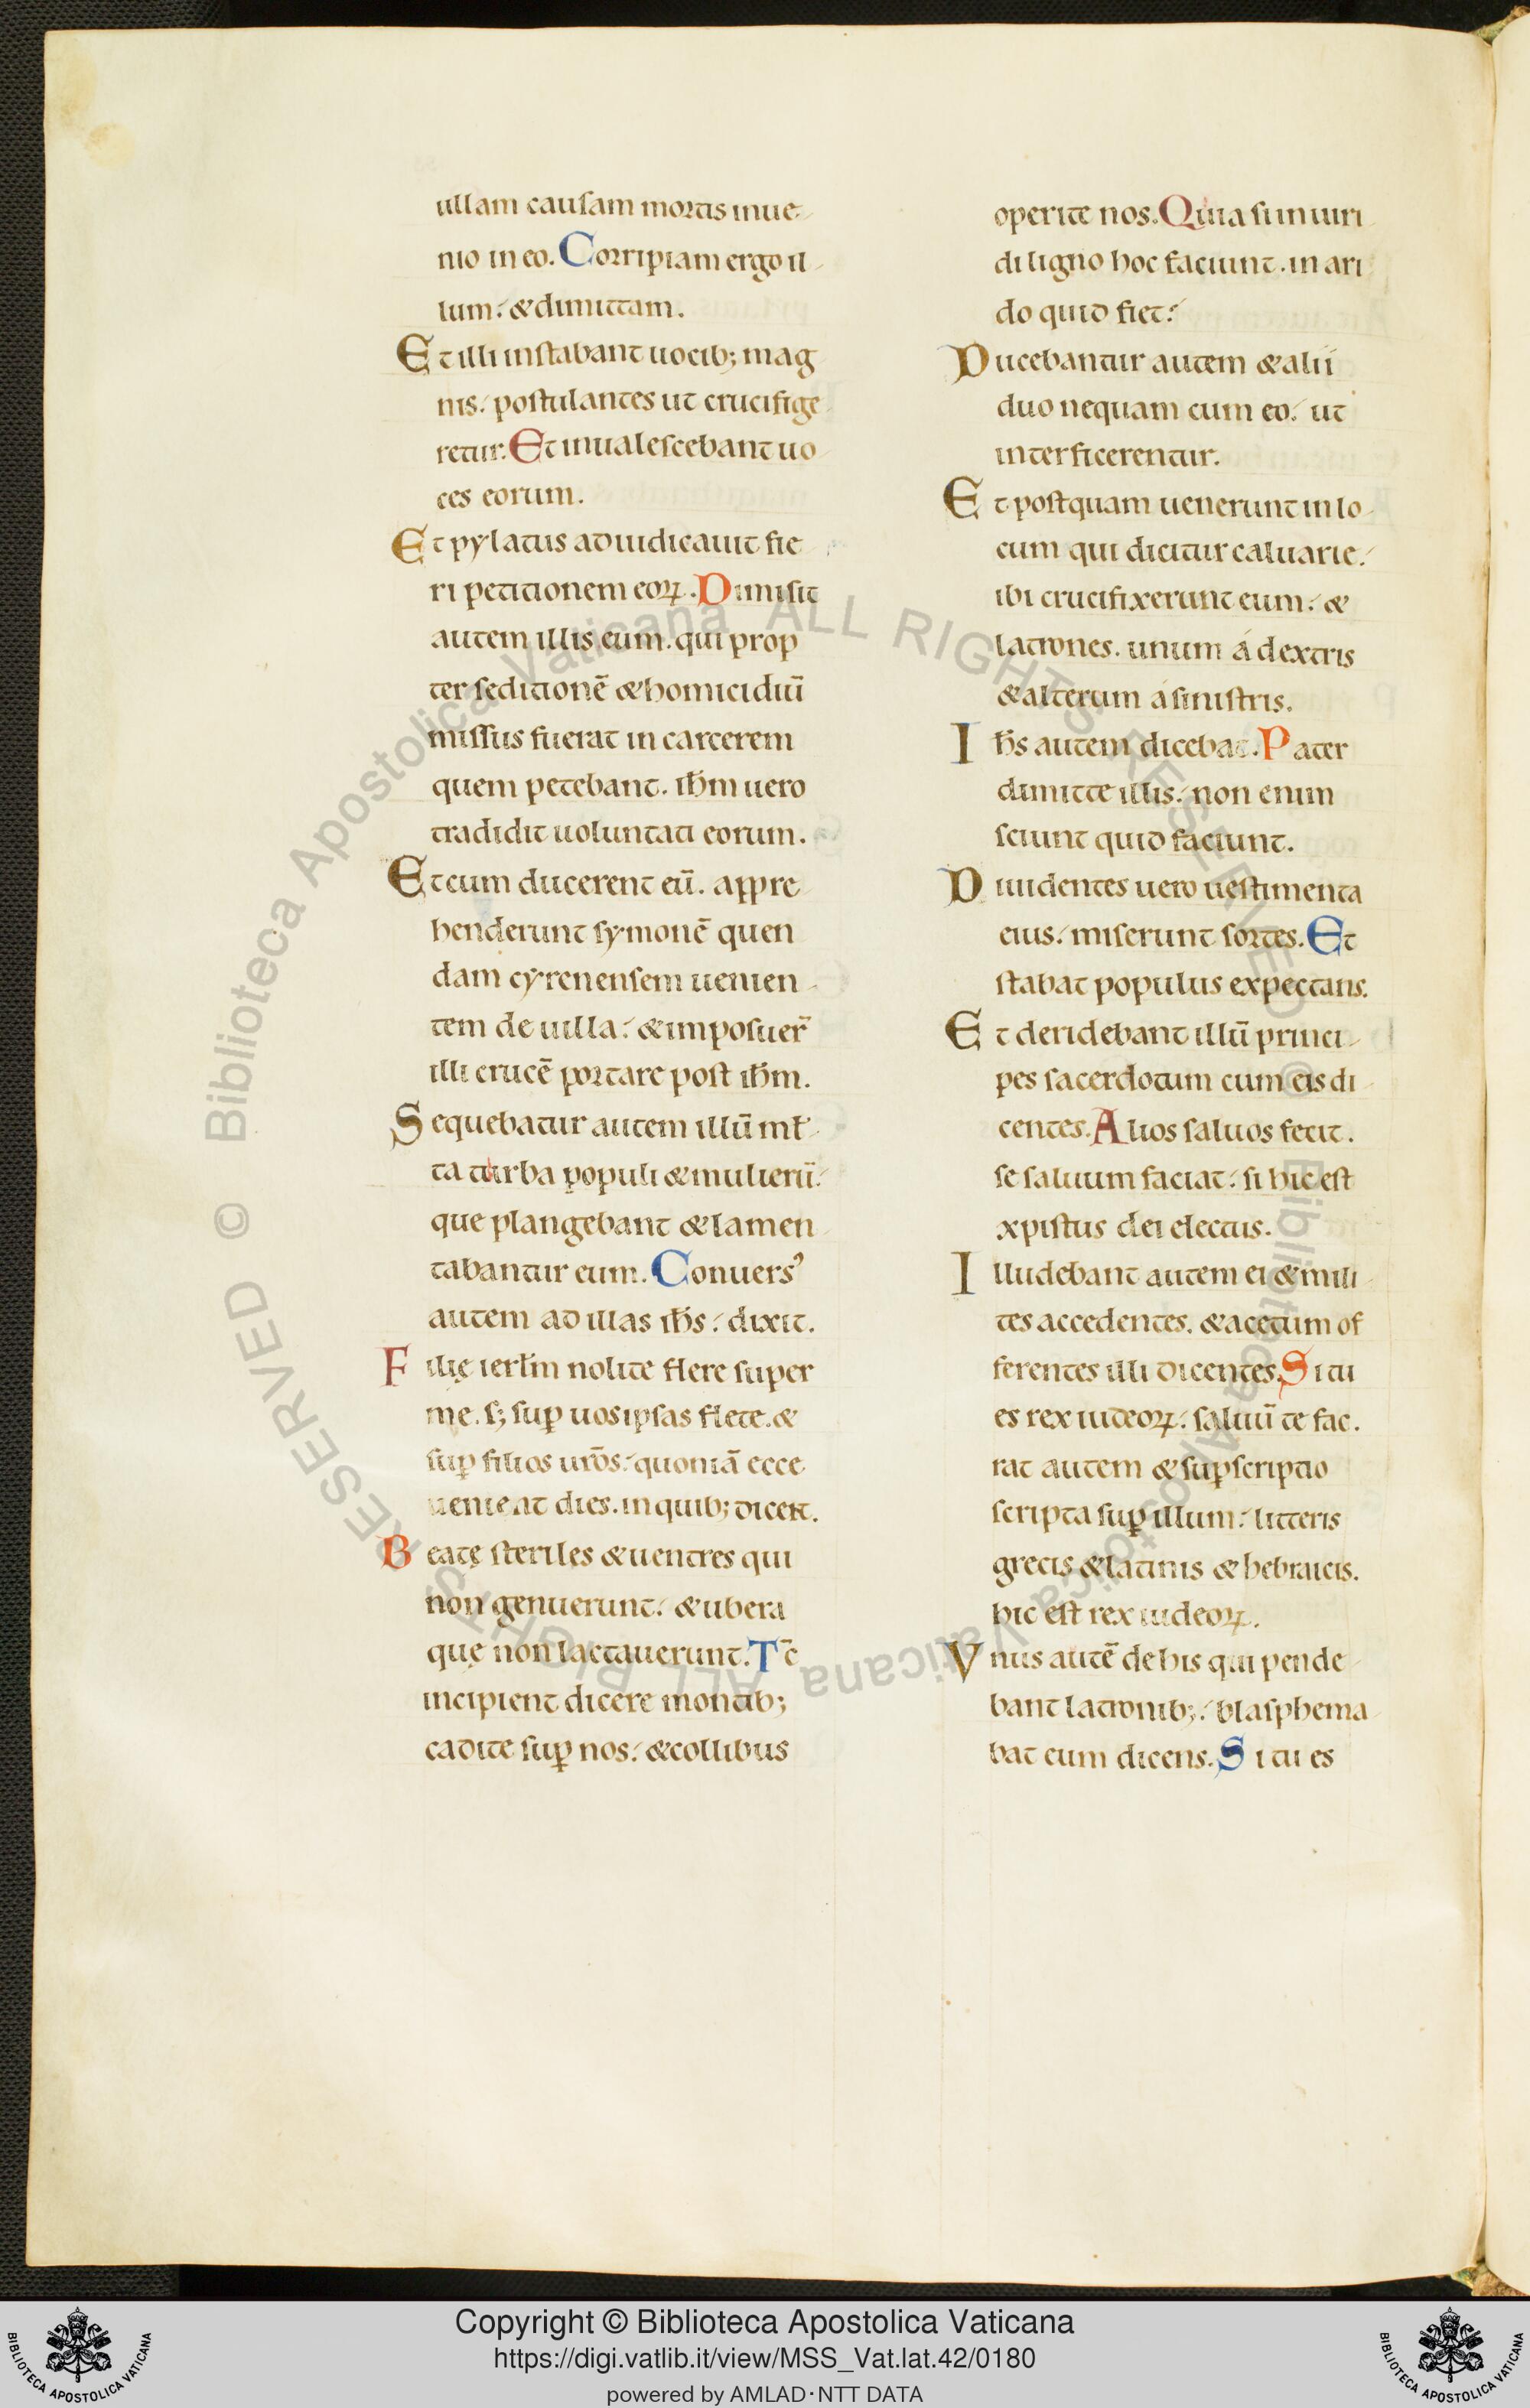 ullam causam mortis inue
nio in eo. Corripiam ergo il
lum. & dimittam.
Et illi instabant uocib; mag
nis. postulantes ut crucifige
retur. Et inualescebant uo
ces eorum.
Et pylatus adiudicauit fie
ri petitionem eoꝝ. Dimisit
autem illis eum. qui prop
ter seditionē & homicidiū
missus fuerat in carcerem
quem petebant. ih̄m uero
tradidit uoluntati eorum.
Et cum ducerent eū. appre
henderunt symonē quen
dam cyrenensem uenien
tem de uilla. & imposuer̄
illi crucē portare post ih̄m.
Sequebatur autem illū ml̄
ta turba populi & mulierū.
que plangebant & lamen
tabantur eum. Conuersꝰ
autem ad illas ih̄s. dixit.
Filię ierl̄m nolite flere super
me. s; suꝑ uos ipsas flete. &
suꝑ filios ur̄os. quoniā ecce
uenient dies. in quib; dicent.
Beatę steriles & uentres qui
non genuerunt. & ubera
quę non lactauerunt. Tc̄
incipient dicere montib;
cadite suꝑ nos. & collibus
operite nos. Quia si in uiri
di ligno hoc faciunt. in ari
do quid fiet.
Ducebantur autem & alii
duo nequam cum eo. ut
interficerentur.
Et postquam uenerunt in lo
cum qui dicitur caluarie.
ibi crucifixerunt eum. &
latrones. unum á dextris
& alterum a sinistris.
Ih̄s autem dicebat. Pater
dimitte illis. non enim
sciunt quid faciunt.
Diuidentes uero uestimenta
eius. miserunt sortes. Et
stabat populus expectans.
Et deridebant illū princi
pes sacerdotum cum eis di
centes. Alios saluos fecit.
se saluum faciat. si hic est
xpistus dei electus.
Illudebant autem ei & mili
tes accedentes. & acetum of
ferentes illi dicentes. Si tu
es rex iudeoꝝ. saluū te fac.
rat autem & suꝑscriptio
scripta suꝑ illum. litteris
grecis & latinis & hebraicis.
hic est rex iudeoꝝ.
Vnus autē de his qui pende
bant latronib;. blasphema
bat eum dicens. Si tu es
© Biblioteca Apostolica Vaticana ALL RIGHTS RESERVED
© Biblioteca Apostolica Vaticana ALL RIGHTS RESERVED
BIBLIOTECA APOSTOLICA VATICANA
Copyright © Biblioteca Apostolica Vaticana
https://digi.vatlib.it/view/MSS_Vat.lat.42/0180
powered by AMLAD·NTT DATA
BIBLIOTECA APOSTOLICA VATICANA